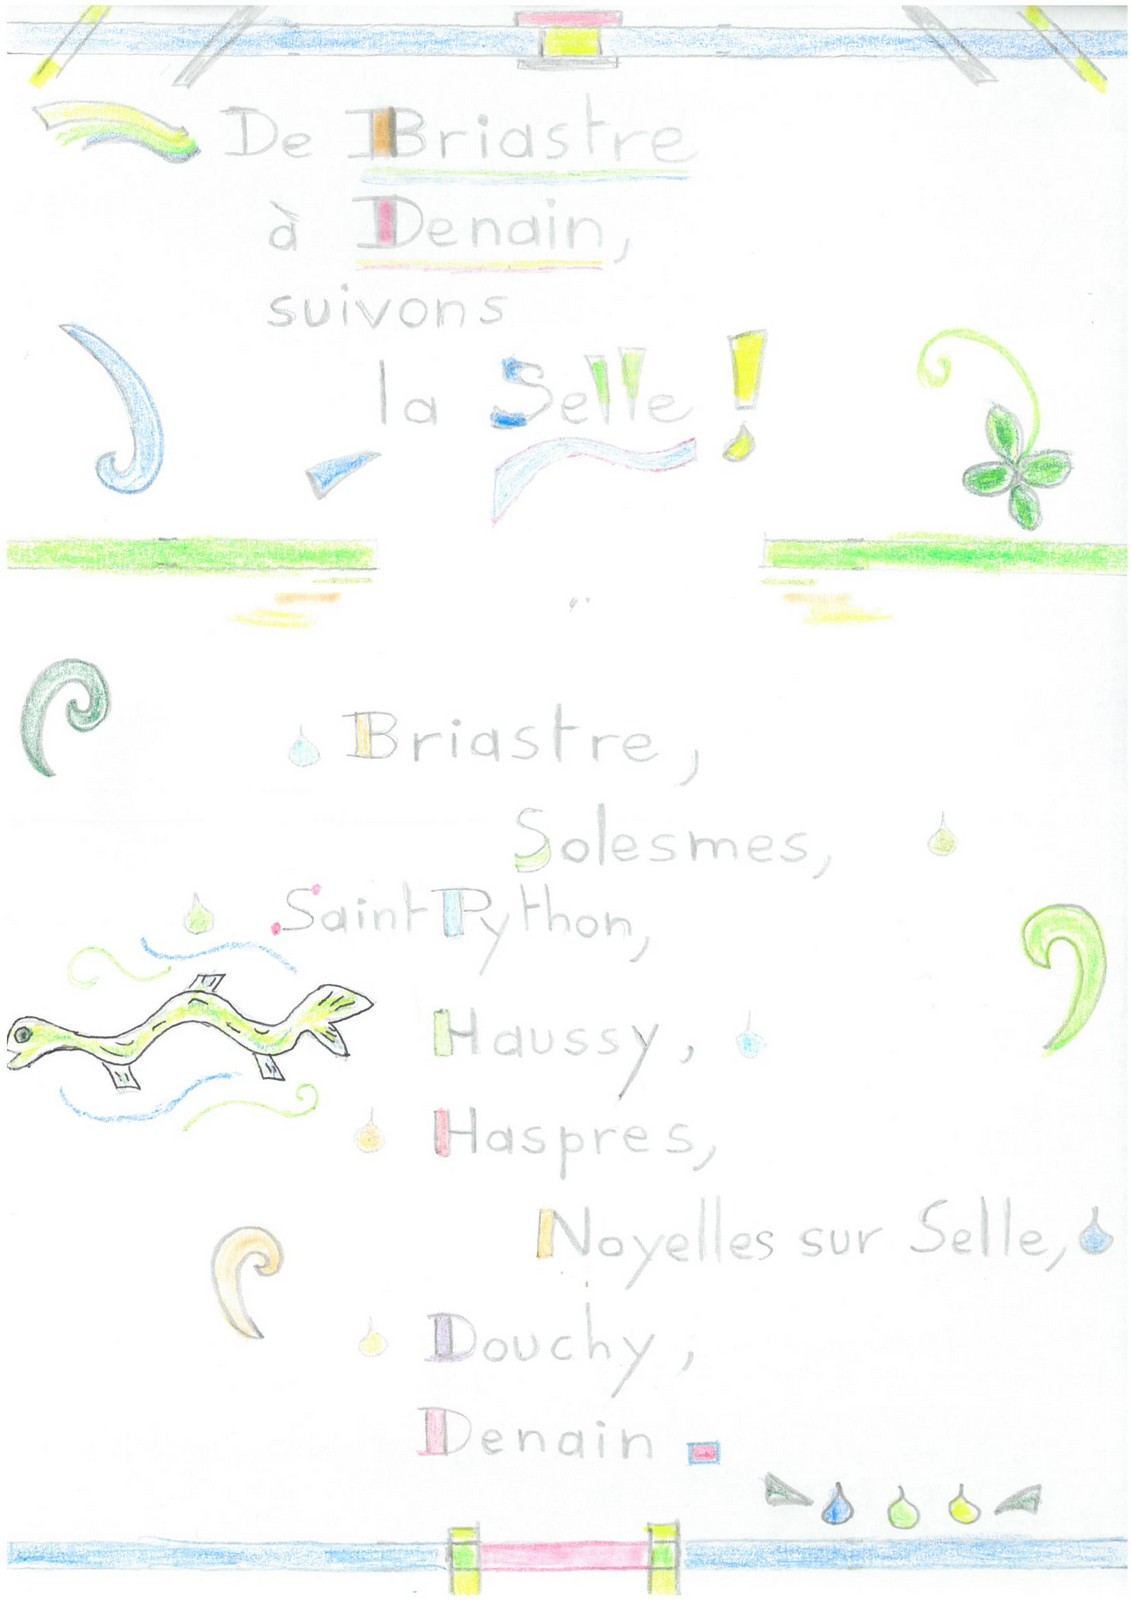 De Briastre
à Denain,
suivons
la Selle !
Briastre,
Solesmes,
Saint Python,
Haussy,
Haspres,
Noyelles sur Selle,
Douchy,
Denain.